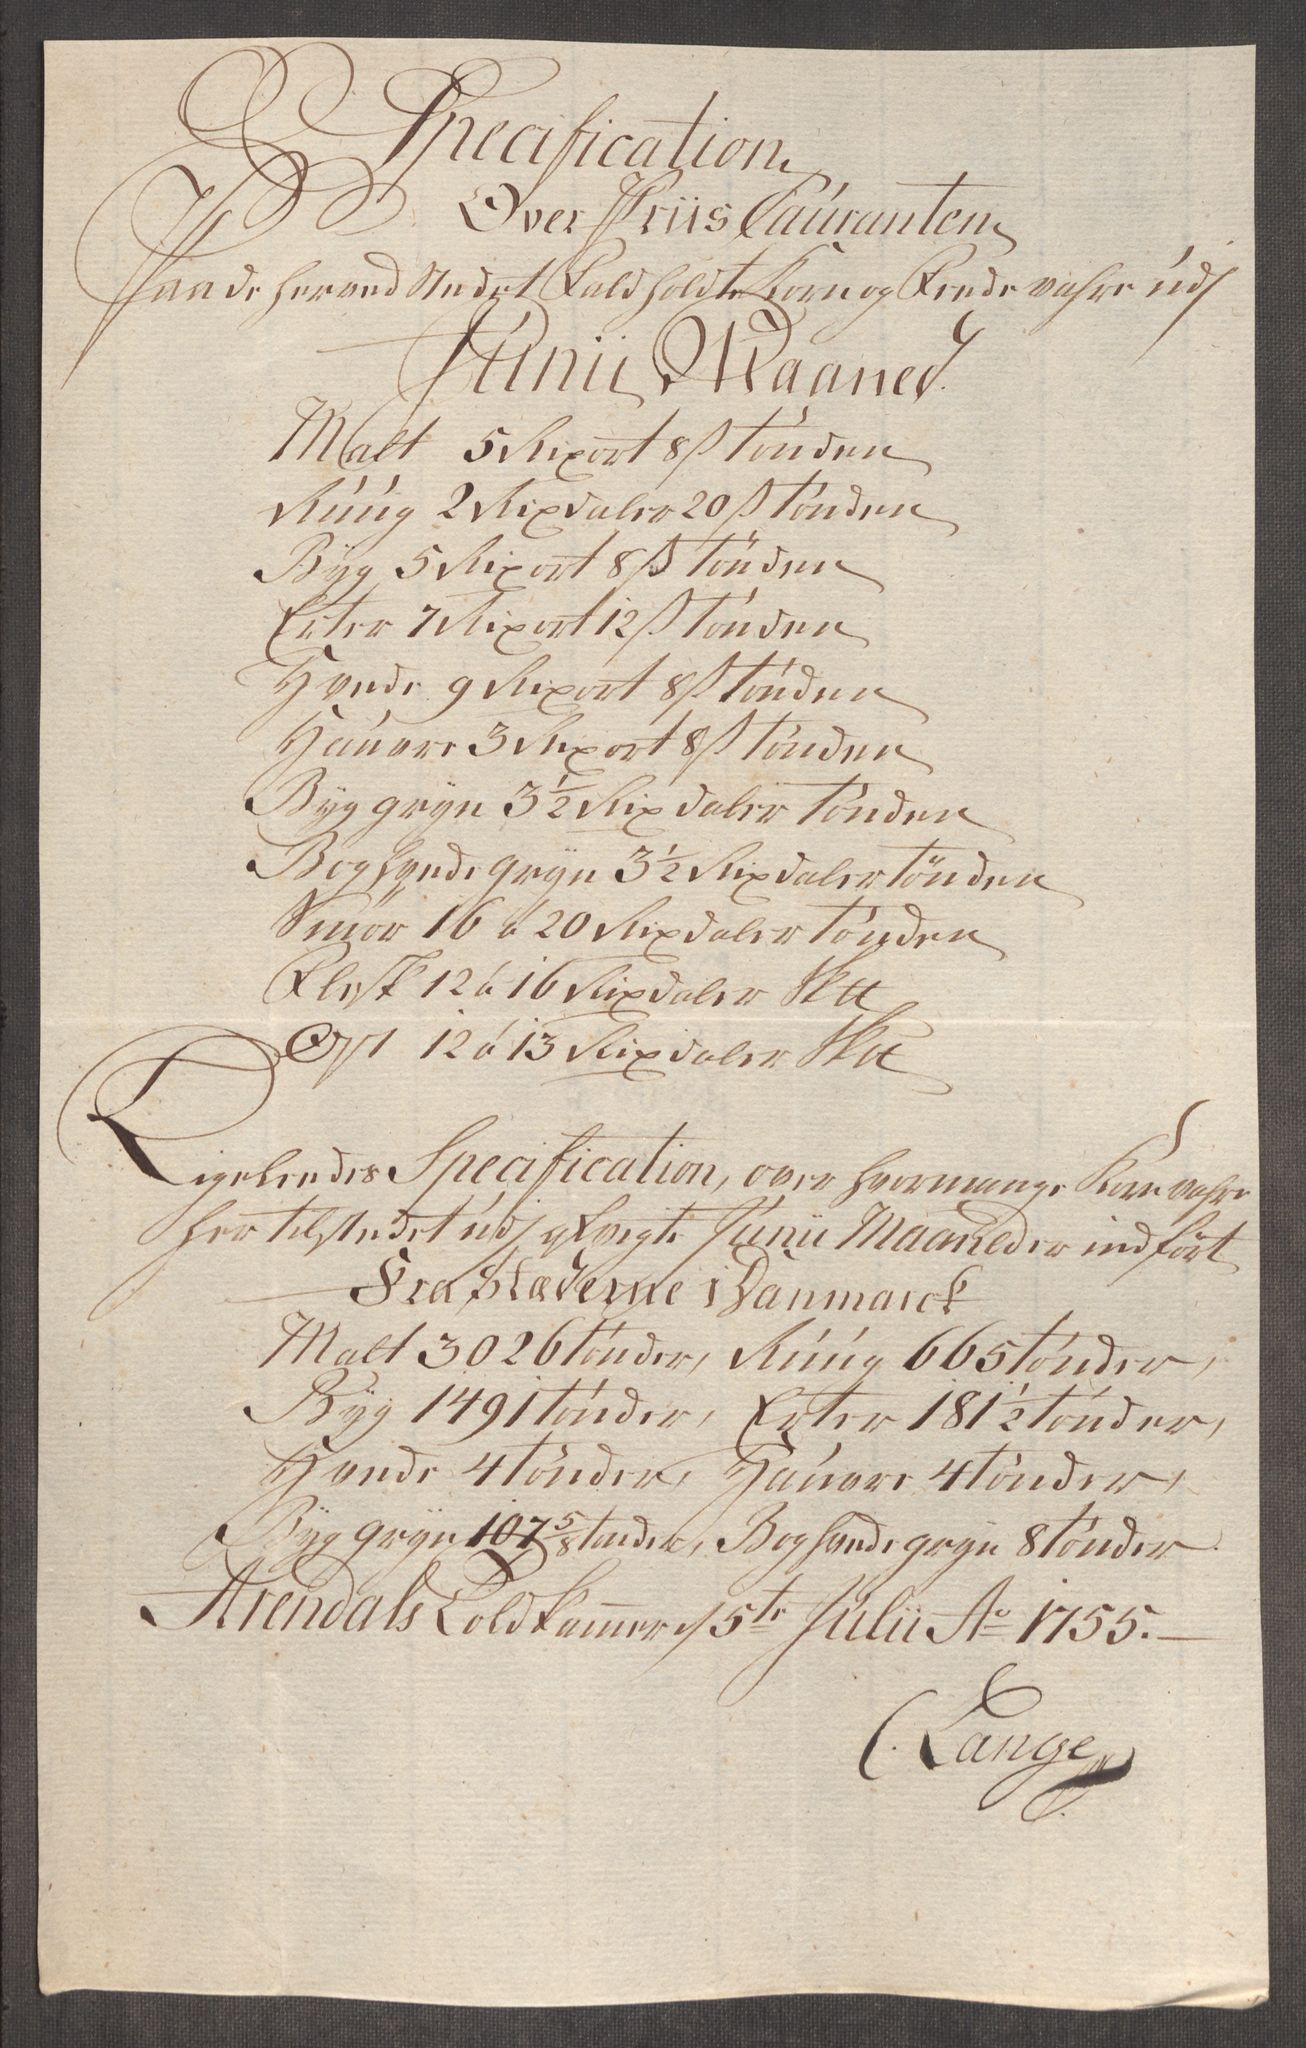 Specification
Over Priis Cauranten
Paa de her ved Stedet Faldholdte Korn og Fede vahre udj
Junii Maaned.
Malt 5 Rixort 8 ß tönden
Rúúg 2 Rixdaler 20 ß tönden
Byg 5 Rixort 8 ß tönden
Erter 7 Rixort 12 ß tönden
Hvede 9 Rixort 8 ß tönden
Haúvre 3 Rixort 8 ß tönden
Byg gryn 3 1/2 Rixdaler tönden
Boghvede gryn 3 1/2 Rixdaler tönden
Smör 16 á 20 Rixdaler tönden
Flesk 12 á 16 Rixdaler Sktt
Ost 12 á 13 Rixdaler Sktt
Ligeleedes Specification, over hvormange Korn vahre
her til Stedet udj Junii Maaneder indfört
Fra Stæderne i Danmarck
Malt 3026 tönder, Rúúg 665 tönder,
Byg 1491 tönder, Erter 181 1/2 tönder,
Hvede 4 tönder, Haúvre 4 tönder,
Byg gryn 107 5/8 tönder, Boghvede gryn 8 tönder.
Arendals Toldkammer d 5te Julii Ao 1755.
C. Lange